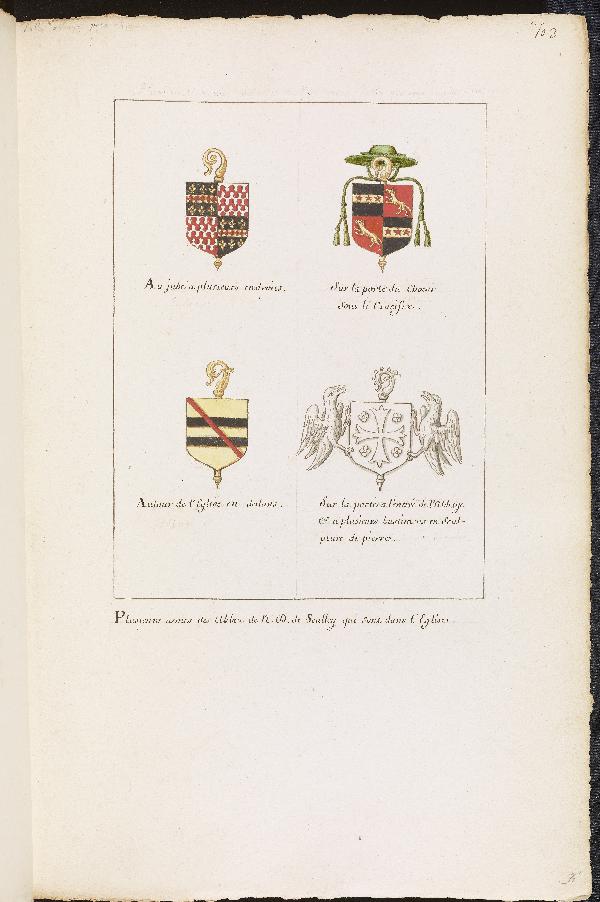 Au jubé a plusieurs endroits.
Sur la porte du Choeur
sous le Crucifix.
Autour de l'Eglise en dedans.
Sur la porte a l'entrée de l'Abbaye
& a plusieurs bastimens en Sculp-
ture de pierres.
Plusieurs armes des Abbez de N. D. de Seulley qui sont dans l'Eglise.